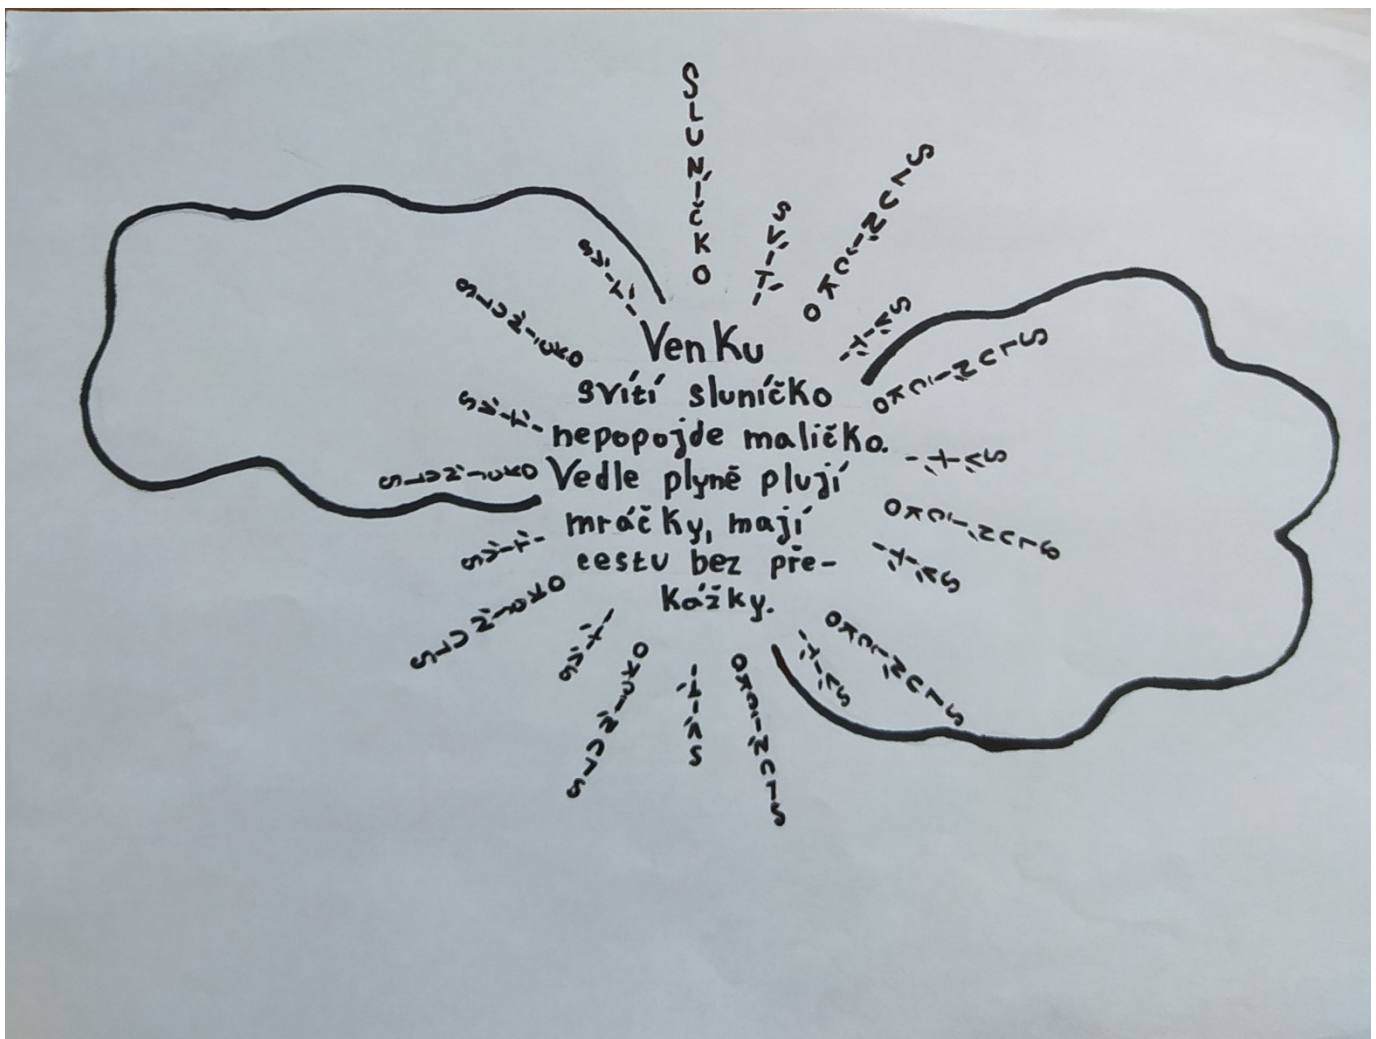 SLUNÍČKO
SVÍTÍ
SLUNÍČKO
SVÍTÍ
SLUNÍČKO
SVÍTÍ
SLUNÍČKO
SVÍTÍ
SLUNÍČKO
SVÍTÍ
SLUNÍČKO
SVÍTÍ
SLUNÍČKO
SVÍTÍ
SLUNÍČKO
SVÍTÍ
SLUNÍČKO
SVÍTÍ
SLUNÍČKO
SVÍTÍ
Venku
svítí sluníčko
nepopojde maličko.
Vedle plyně plují
mráčky, mají
cestu bez pře-
kážky.